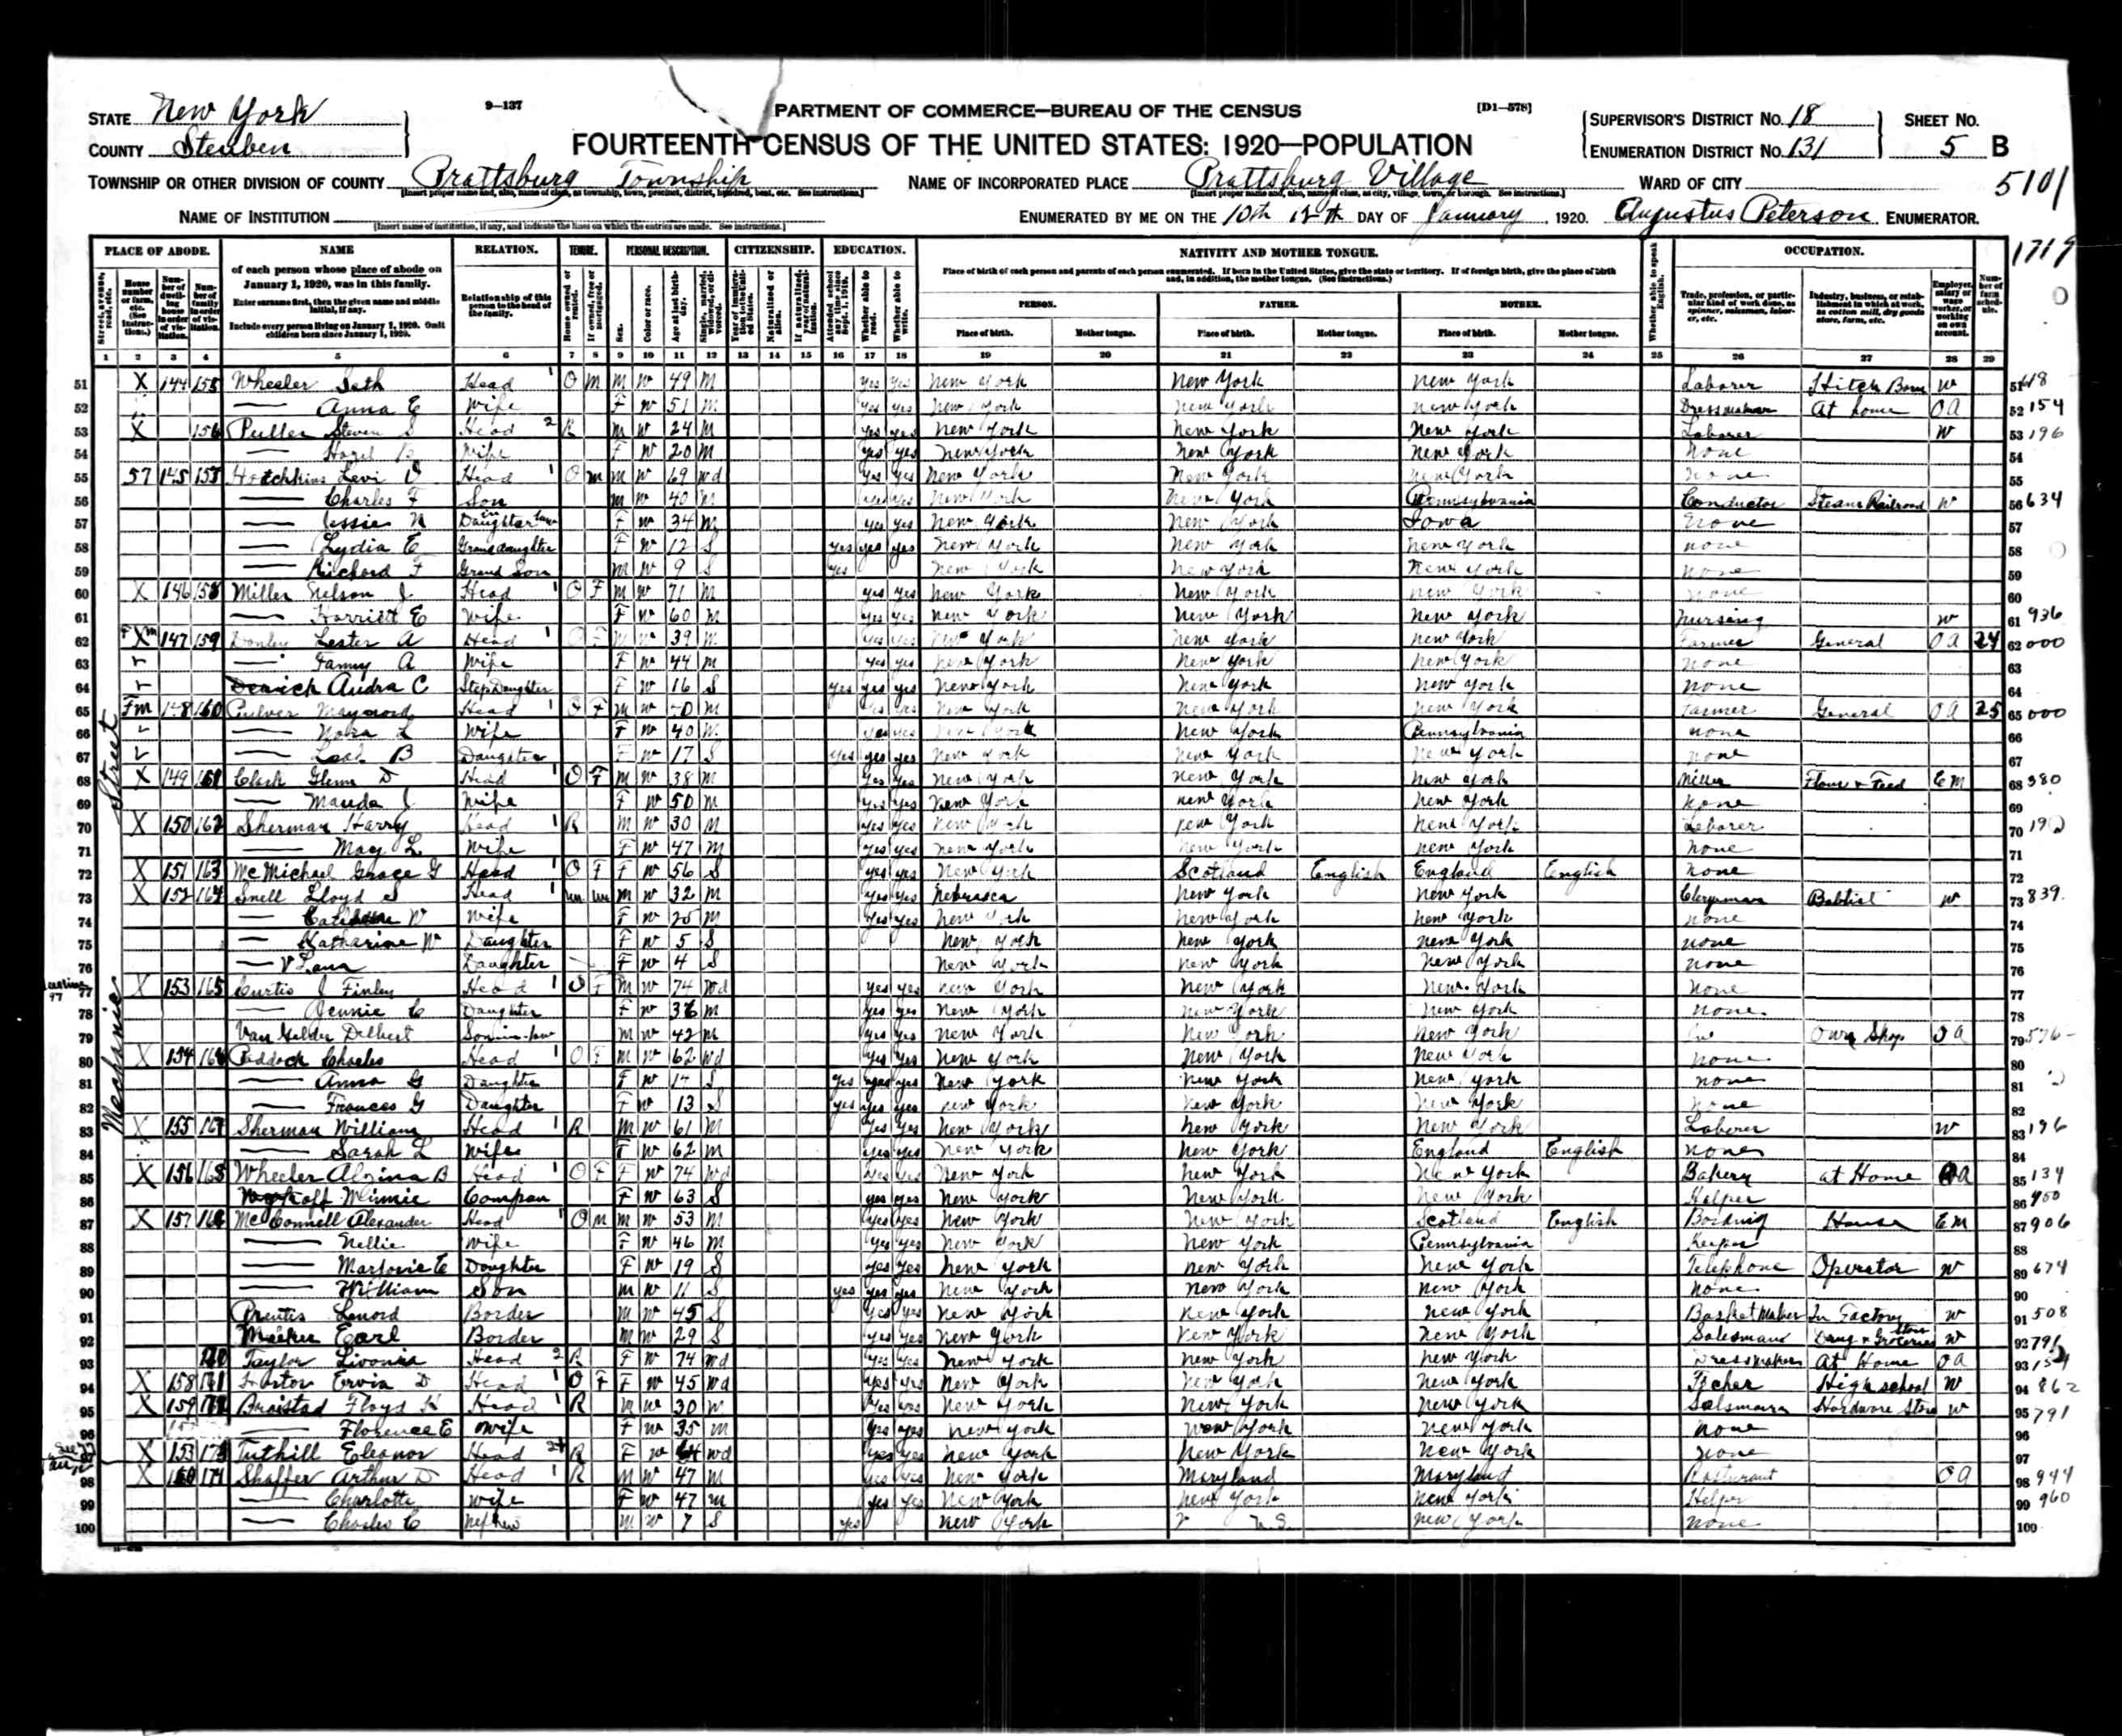 9—137
PARTMENT OF COMMERCE—BUREAU OF THE CENSUS
[D1—578]
STATE New York
COUNTY Steuben
FOURTEENTH CENSUS OF THE UNITED STATES: 1920—POPULATION
SUPERVISOR'S DISTRICT No. 18
ENUMERATION DISTRICT No. 131
SHEET No. 5 B
5101
TOWNSHIP OR OTHER DIVISION OF COUNTY Prattsburg Township
NAME OF INCORPORATED PLACE Prattsburg Village
WARD OF CITY
NAME OF INSTITUTION
ENUMERATED BY ME ON THE 10th 12th DAY OF January, 1920. Augustus Peterson ENUMERATOR.
1719
PLACE OF ABODE. NAME RELATION. TENURE. PERSONAL DESCRIPTION. CITIZENSHIP. EDUCATION. NATIVITY AND MOTHER TONGUE. OCCUPATION.
of each person whose place of abode on January 1, 1920, was in this family.
Enter surname first, then the given name and middle initial, if any.
Include every person living on January 1, 1920. Omit children born since January 1, 1920.
Relationship of this person to the head of the family.
Place of birth of each person and parents of each person enumerated. If born in the United States, give the state or territory. If of foreign birth, give the place of birth and, in addition, the mother tongue. (See instructions.)
PERSON. FATHER. MOTHER.
Place of birth. Mother tongue. Place of birth. Mother tongue. Place of birth. Mother tongue.
1 2 3 4 5 6 7 8 9 10 11 12 13 14 15 16 17 18 19 20 21 22 23 24 25 26 27 28 29
Mechanic Street
51 X 144 155 Wheeler Seth Head 1 O M M W 49 M yes yes New York New York New York Laborer W 51
52 Anna E Wife F W 51 M yes yes New York New York New York Dressmaker At home OA 52 154
53 X 156 Puller Steven S Head 2 R M W 24 M yes yes New York New York New York Laborer W 53 196
54 Hazel Wife F W 20 M yes yes New York New York New York none 54
55 57 145 157 Hotchkins Levi Head 1 O M M W 69 Wd yes yes New York New York New York none 55
56 Charles F Son M W 40 M yes yes New York New York Pennsylvania Conductor Steam Railroad W 56 634
57 Jessie Daughter in law F W 34 M yes yes New York New York Iowa none 57
58 Lydia E Granddaughter F W 12 S yes yes yes New York New York New York none 58
59 Richard F Grand Son M W 9 S yes New York New York New York none 59
60 X 146 158 Miller Nelson J Head 1 O F M W 71 M yes yes New York New York New York none 60
61 Harriett E Wife F W 60 M yes yes New York New York New York Nursing W 61 936
62 147 159 Lester A Head 1 O F M W 39 M yes yes New York New York New York Farmer General OA 24 62 000
63 Fanny A Wife F W 44 M yes yes New York New York New York none 63
64 Audra C Step Daughter F W 16 S yes yes yes New York New York New York none 64
65 Fm 148 160 Culver Maynord Head 1 O F M W M yes yes New York New York New York Farmer General OA 25 65 000
66 Nora L Wife F W 40 M yes yes New York New York Pennsylvania none 66
67 B Daughter F W 17 S yes yes yes New York New York New York none 67
68 X 149 161 Clark Glenn D Head 1 O F M W 38 M yes yes New York New York New York Miller Flour & Feed EM 68 380
69 Mauda J Wife F W 50 M yes yes New York New York New York none 69
70 X 150 162 Sherman Harry Head 1 R M W 30 M yes yes New York New York New York Laborer 70
71 May L Wife F W 47 M yes yes New York New York New York none 71
72 X 151 163 McMichael Grace G Head 1 O F F W 56 S yes yes New York Scotland English England English none 72
73 X 152 164 Snell Lloyd S Head 1 un un M W 32 M yes yes Nebrasca New York New York Clergyman Babtist W 73 839
74 Wife F W M yes yes New York New York New York none 74
75 Katharine W Daughter F W 5 S New York New York New York none 75
76 Daughter F W 4 S New York New York New York none 76
77 X 153 165 Curtis J Finley Head 1 O F M W 74 Wd yes yes New York New York New York none 77
78 Jennie C Daughter F W 36 M yes yes New York New York New York none 78
79 Van Gelder Delbert Son in-law M W 42 M yes yes New York New York New York Own Shop OA 79 576
80 X 154 166 Paddock Charles Head 1 O F M W 62 Wd yes yes New York New York New York none 80
81 Anna G Daughter F W 14 S yes yes yes New York New York New York none 81
82 Frances G Daughter F W 13 S yes yes yes New York New York New York none 82
83 X 155 167 Sherman William Head 1 R M W 61 M yes yes New York New York New York Laborer W 83 196
84 Sarah L Wife F W 62 M yes yes New York New York England English none 84
85 X 156 168 Wheeler Alzina B Head 1 O F F W 74 Wd yes yes New York New York New York Bakery at Home OA 85 134
86 Wyckoff Winnie Compan F W 63 S yes yes New York New York New York Helper 86
87 X 157 169 McConnell Alexander Head 1 O M M W 53 M yes yes New York New York Scotland English Bording House EM 87 906
88 Nellie Wife F W 46 M yes yes New York New York Pennsylvania Keeper 88
89 Marjorie E Daughter F W 19 S yes yes New York New York New York Telephone Operator W 89 674
90 William Son M W 11 S yes yes yes New York New York New York none 90
91 Prentis Lenord Border M W 45 S yes yes New York New York New York Basket Maker In Factory W 91 508
92 Meeker Earl Border M W 29 S yes yes New York New York New York Salesmand Drug & Groceries Store W 92 791
93 170 Taylor Livonia Head 2 R F W 74 Wd yes yes New York New York New York Dressmaker At Home OA 93 154
94 X 158 171 Ervin D Head 1 O F F W 45 Wd yes yes New York New York New York Techer High school W 94 862
95 X 159 172 Braisted Floyd H Head 1 R M W 30 yes yes New York New York New York Salsmann Hardware Store W 95 791
96 Florence E Wife F W 35 M yes yes New York New York New York none 96
97 X 153 173 Tuthill Eleanor Head R F W 64 Wd yes yes New York New York New York none 97
98 X 160 174 Shaffer Arthur D Head 1 R M W 47 M yes yes New York Maryland Maryland Resturant OA 98 944
99 Charlotte Wife F W 47 M yes yes New York New York New York Helper 99 960
100 Charles C Nephew M W 7 S yes New York U.S. New York none 100